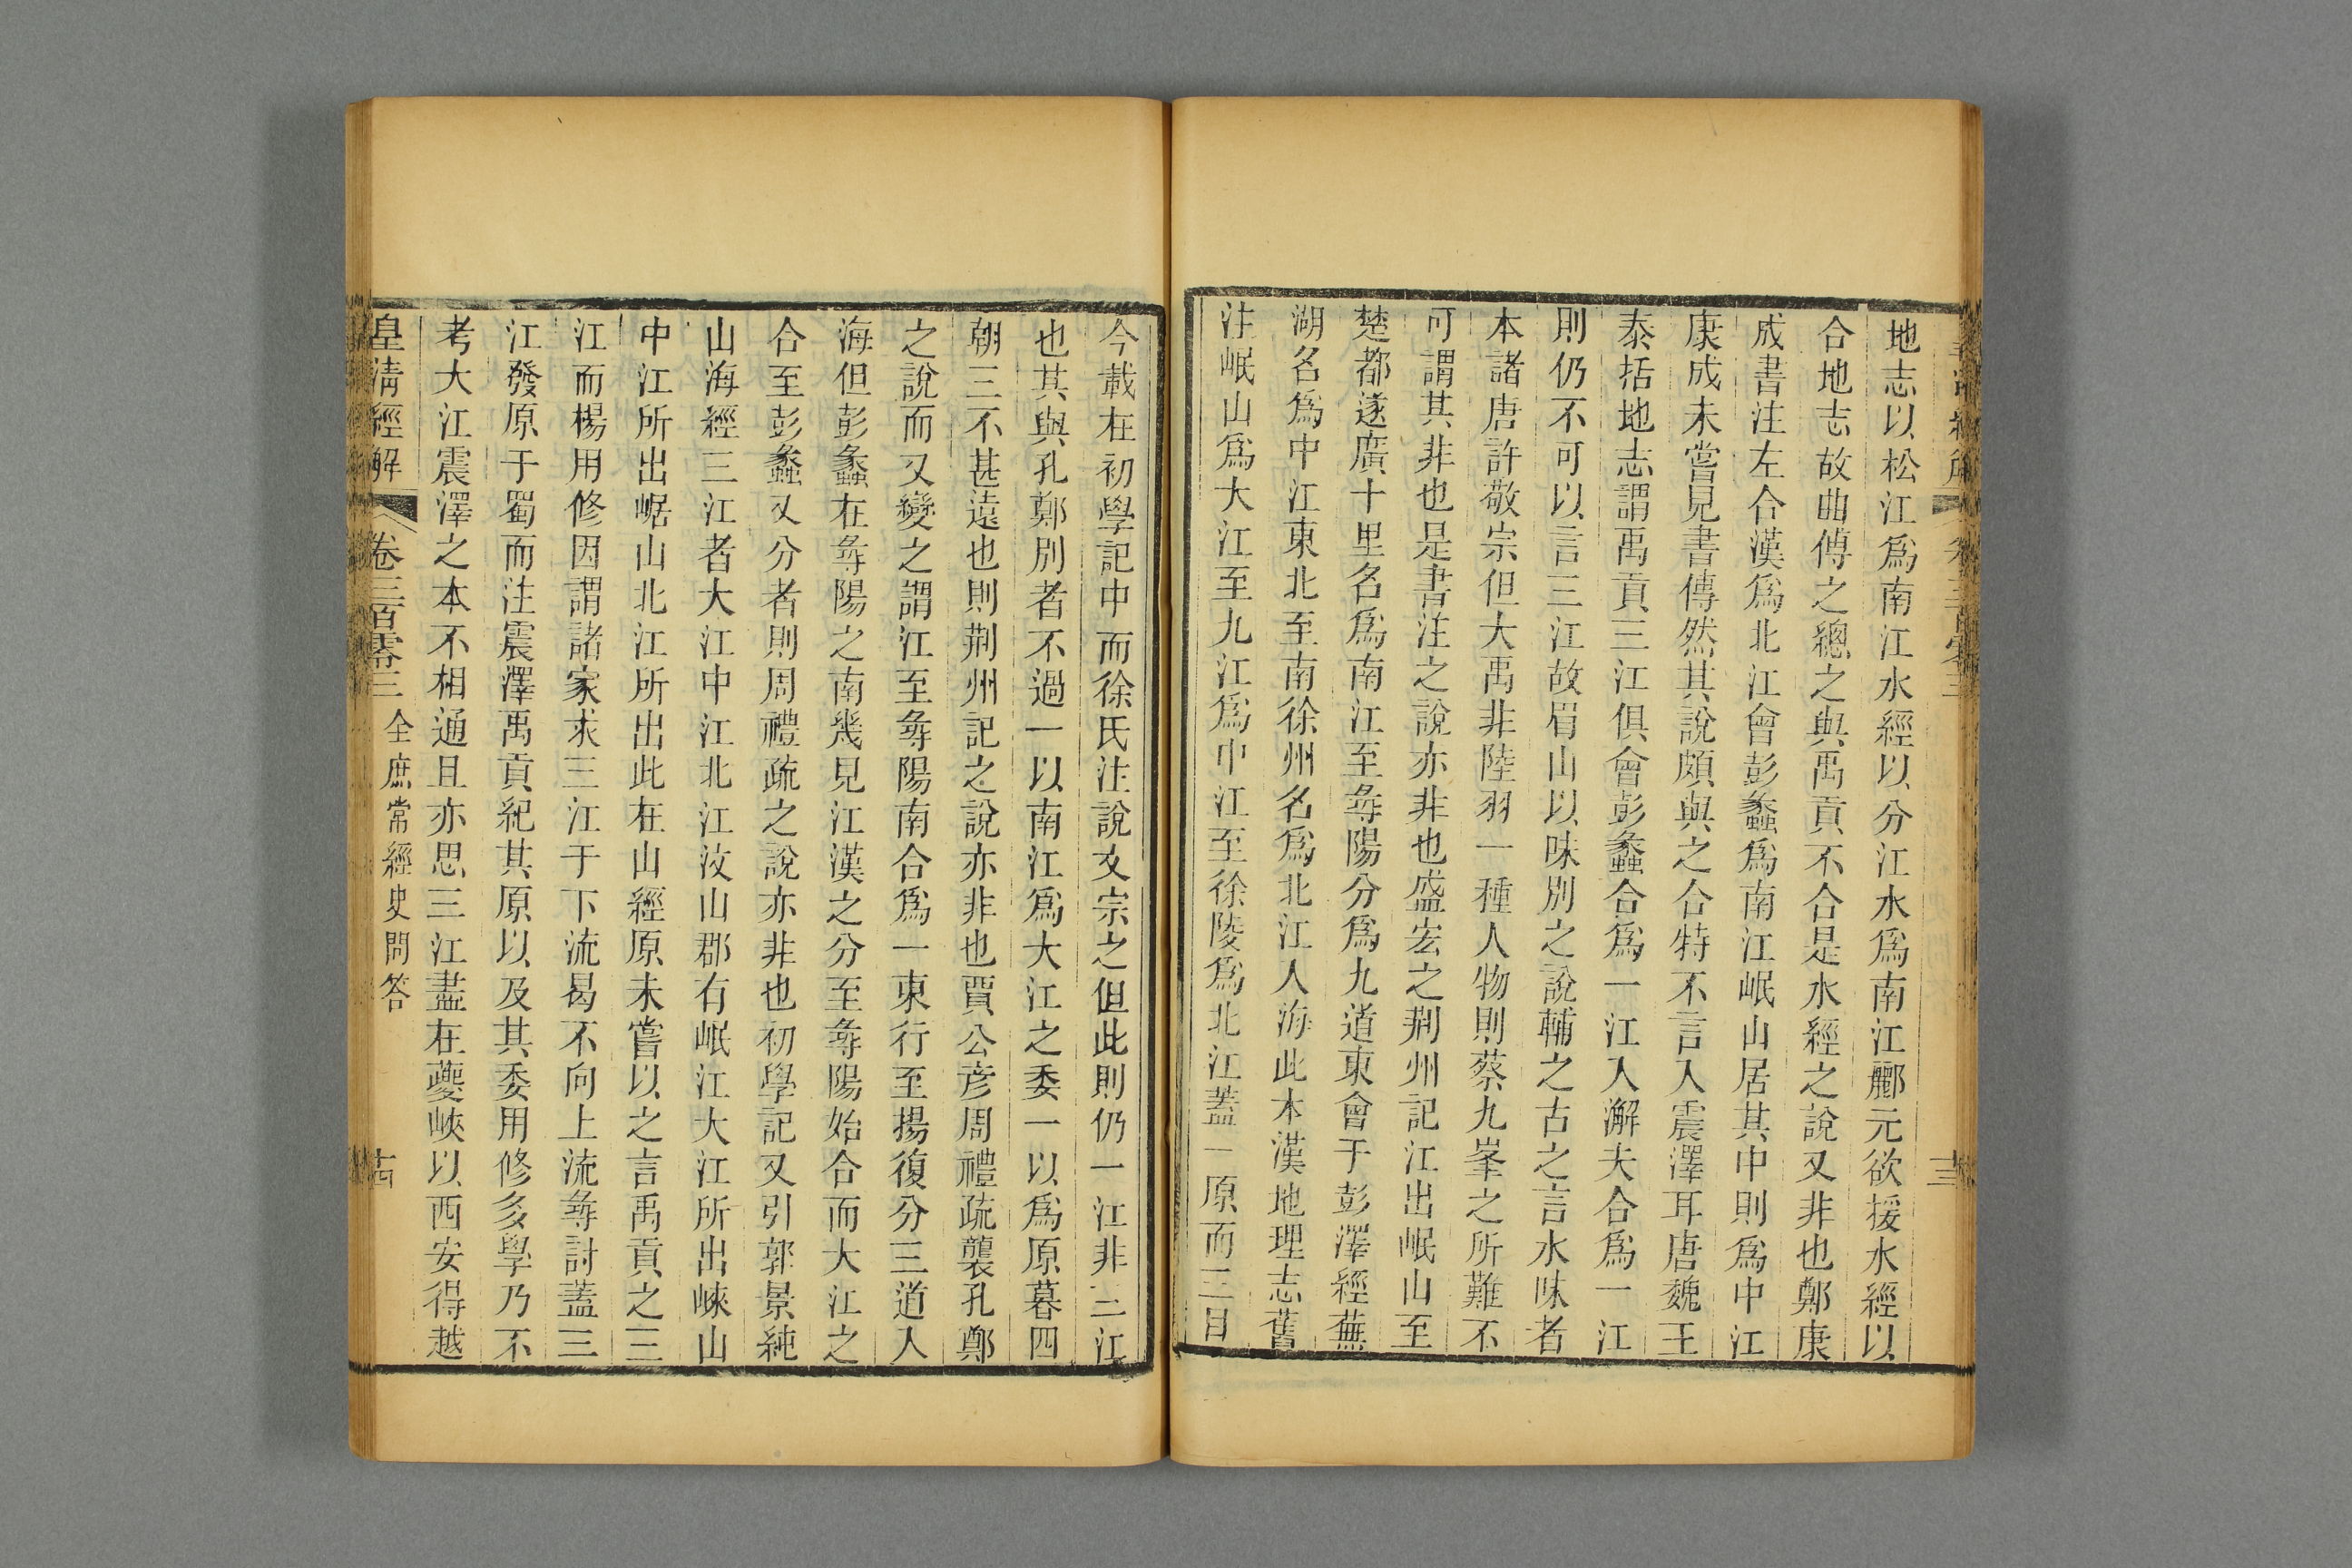 地志以松江爲南江水經以分江水爲南江酈元欲援水經以
合地志故曲傅之總之與禹貢不合是水經之說又非也鄭康
成書注左合漢爲北江會彭蠡爲南江岷山居其中則爲中江
康成未嘗見書傳然其說頗與之合特不言入震澤耳唐魏王
泰括地志謂禹貢三江俱會彭蠡合爲一江入澥夫合爲一江
則仍不可以言三江故眉山以味別之說輔之古之言水味者
本諸唐許敬宗但大禹非陸羽一種人物則蔡九峯之所難不
可謂其非也是書注之說亦非也盛宏之荆州記江出岷山至
楚都遂廣十里名爲南江至㝷陽分爲九道東會于彭澤經蕪
湖名爲中江東北至南徐州名爲北江入海此本漢地理志舊
注岷山爲大江至九江爲中江至徐陵爲北江蓋一原而三目
今載在初學記中而徐氏注說文宗之但此則仍一江非三江
也其與孔鄭別者不過一以南江爲大江之委一以爲原暮四
朝三不甚遠也則荆州記之說亦非也賈公彦周禮疏襲孔鄭
之說而又變之謂江至㝷陽南合爲一東行至揚復分三道入
海但彭蠡在㝷陽之南幾見江漢之分至㝷陽始合而大江之
合至彭蠡又分者則周禮疏之說亦非也初學記又引郭景純
山海經三江者大江中江北江汶山郡有岷江大江所出崍山
中江所出崌山北江所出此在山經原未嘗以之言禹貢之三
江而楊用修因謂諸家求三江于下流曷不向上流㝷討蓋三
江發原于蜀而注震澤禹貢紀其原以及其委用修多學乃不
考大江震澤之本不相通且亦思三江盡在夔峽以西安得越
皇清經解 卷三百零三 全庶常經史問答 十四